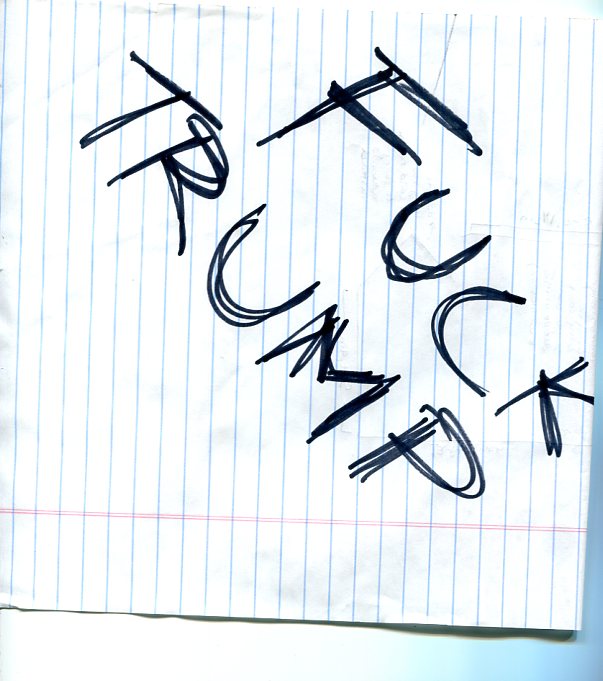 FUCK
TRUMP